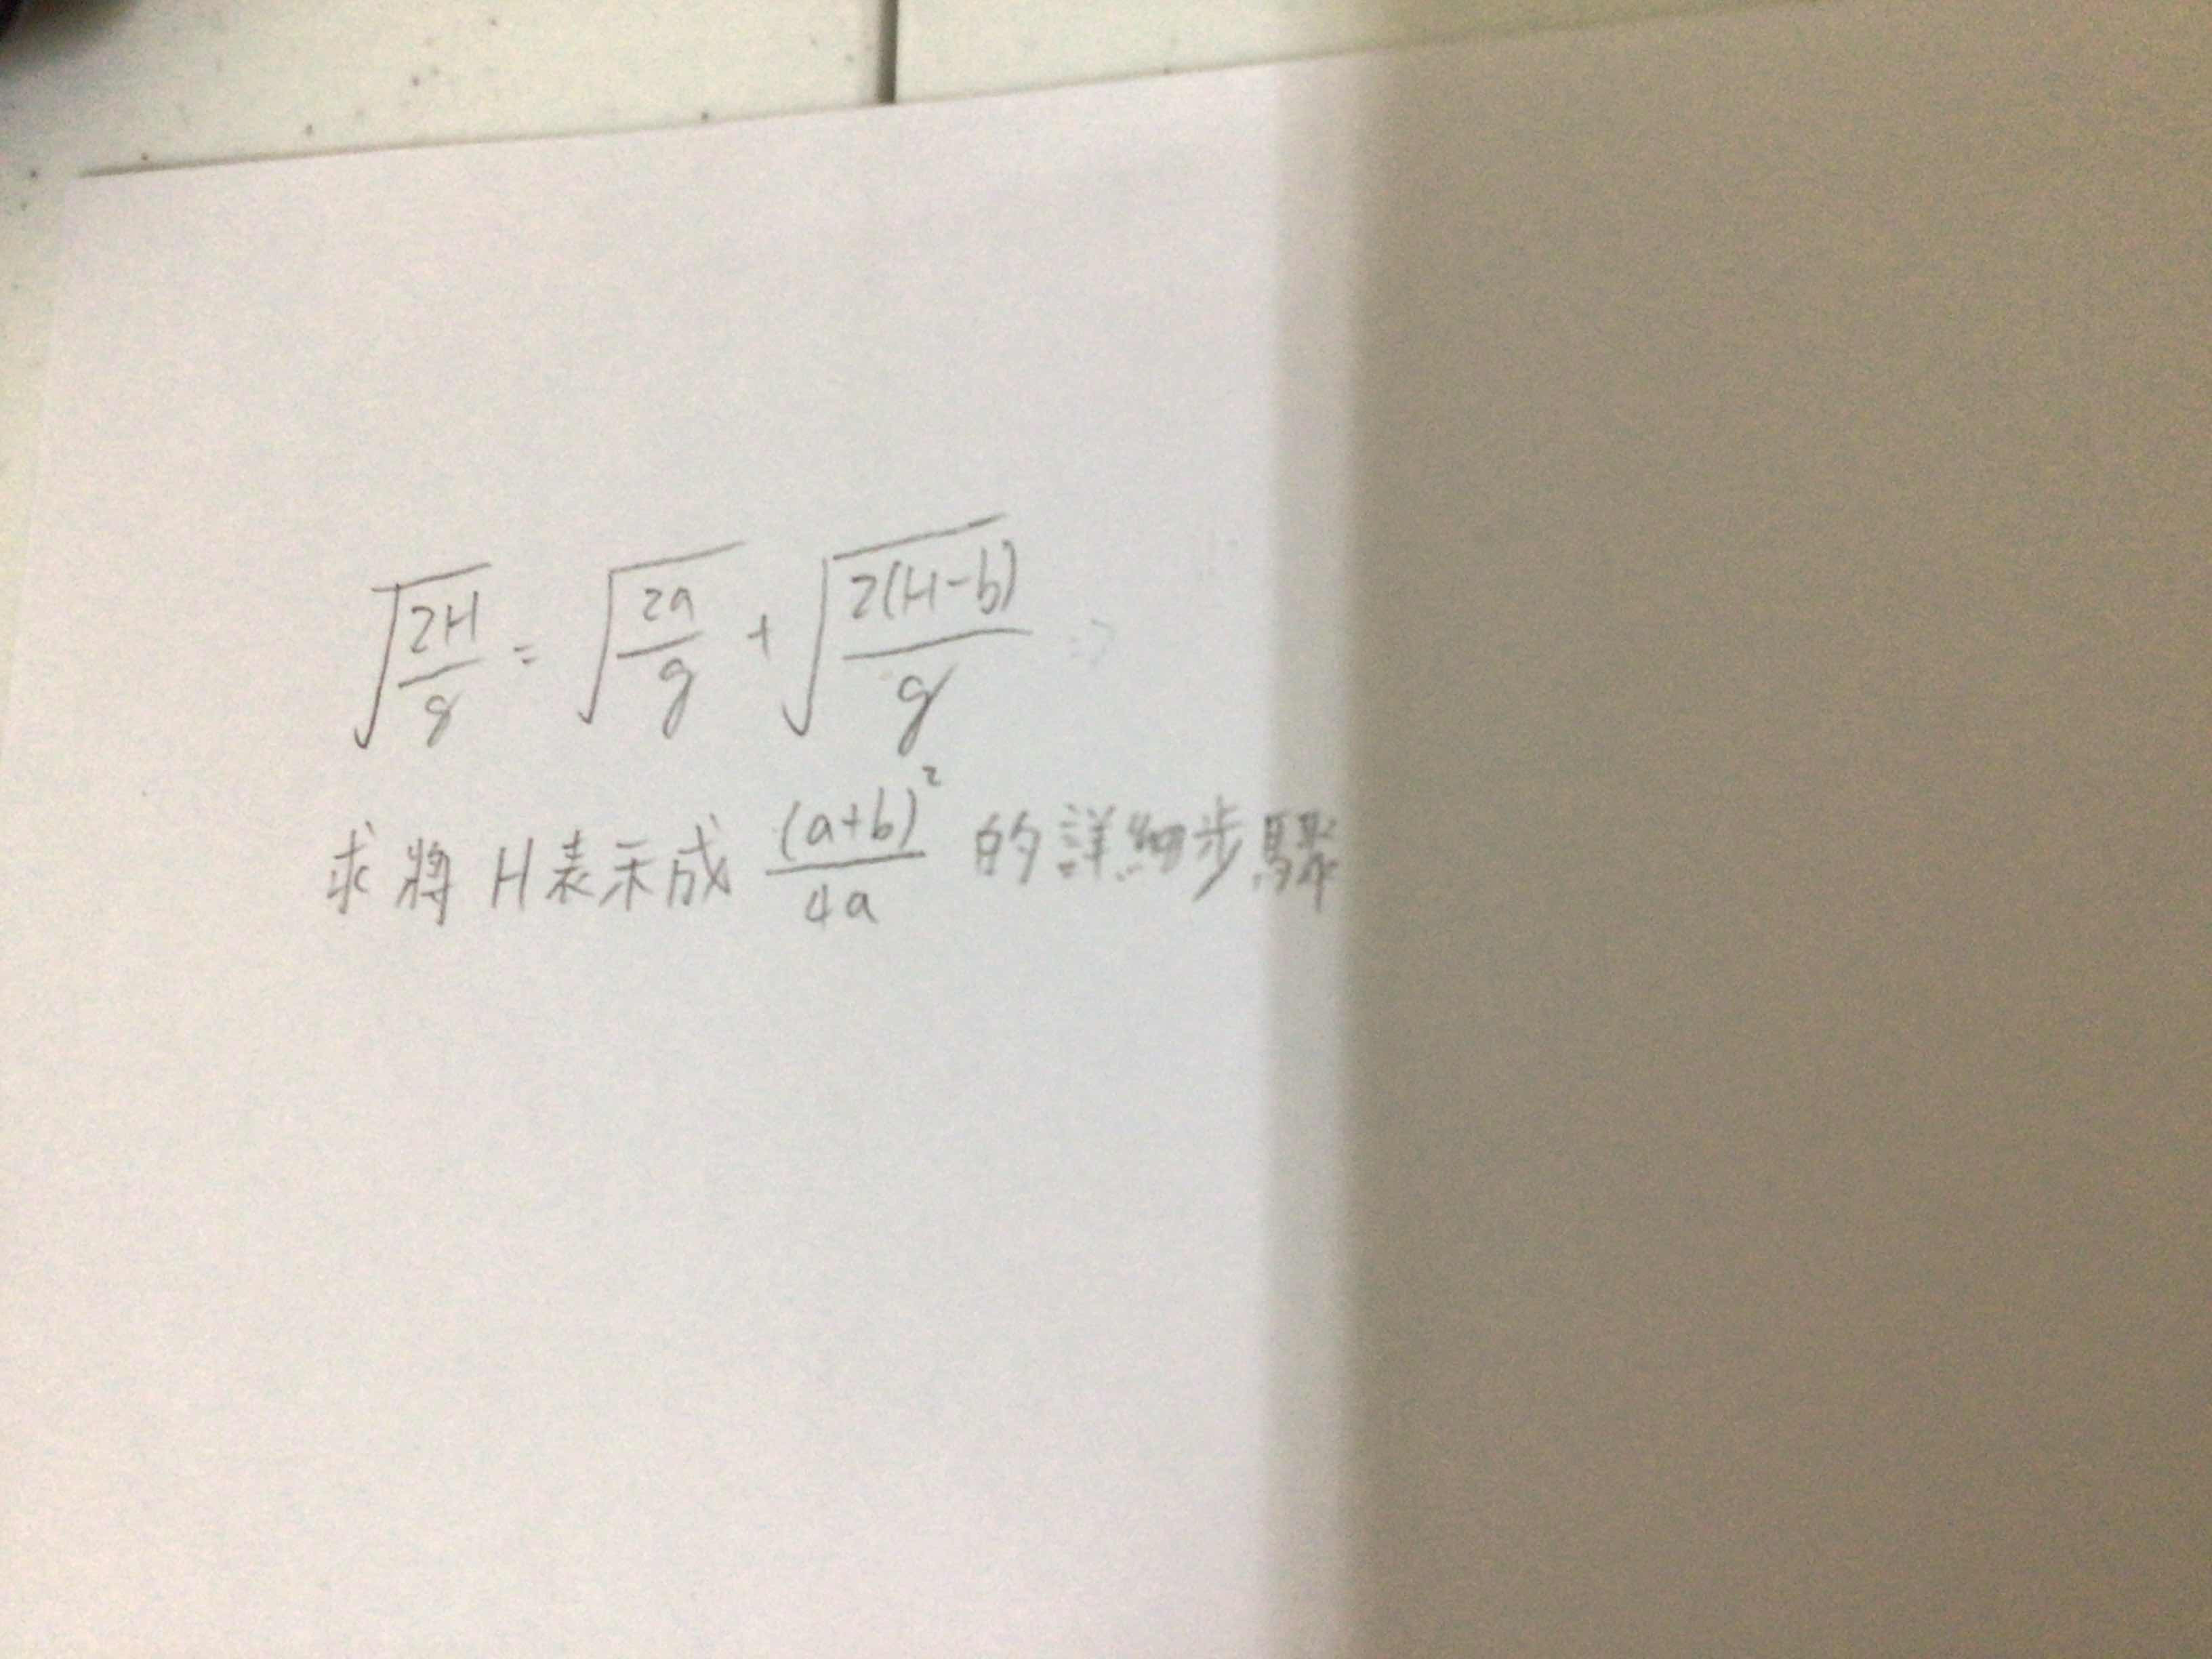 √(2H/g) = √(2a/g) + √(2(H-b)/g)
求將 H表示成 (a+b)²/4a 的詳細步驟